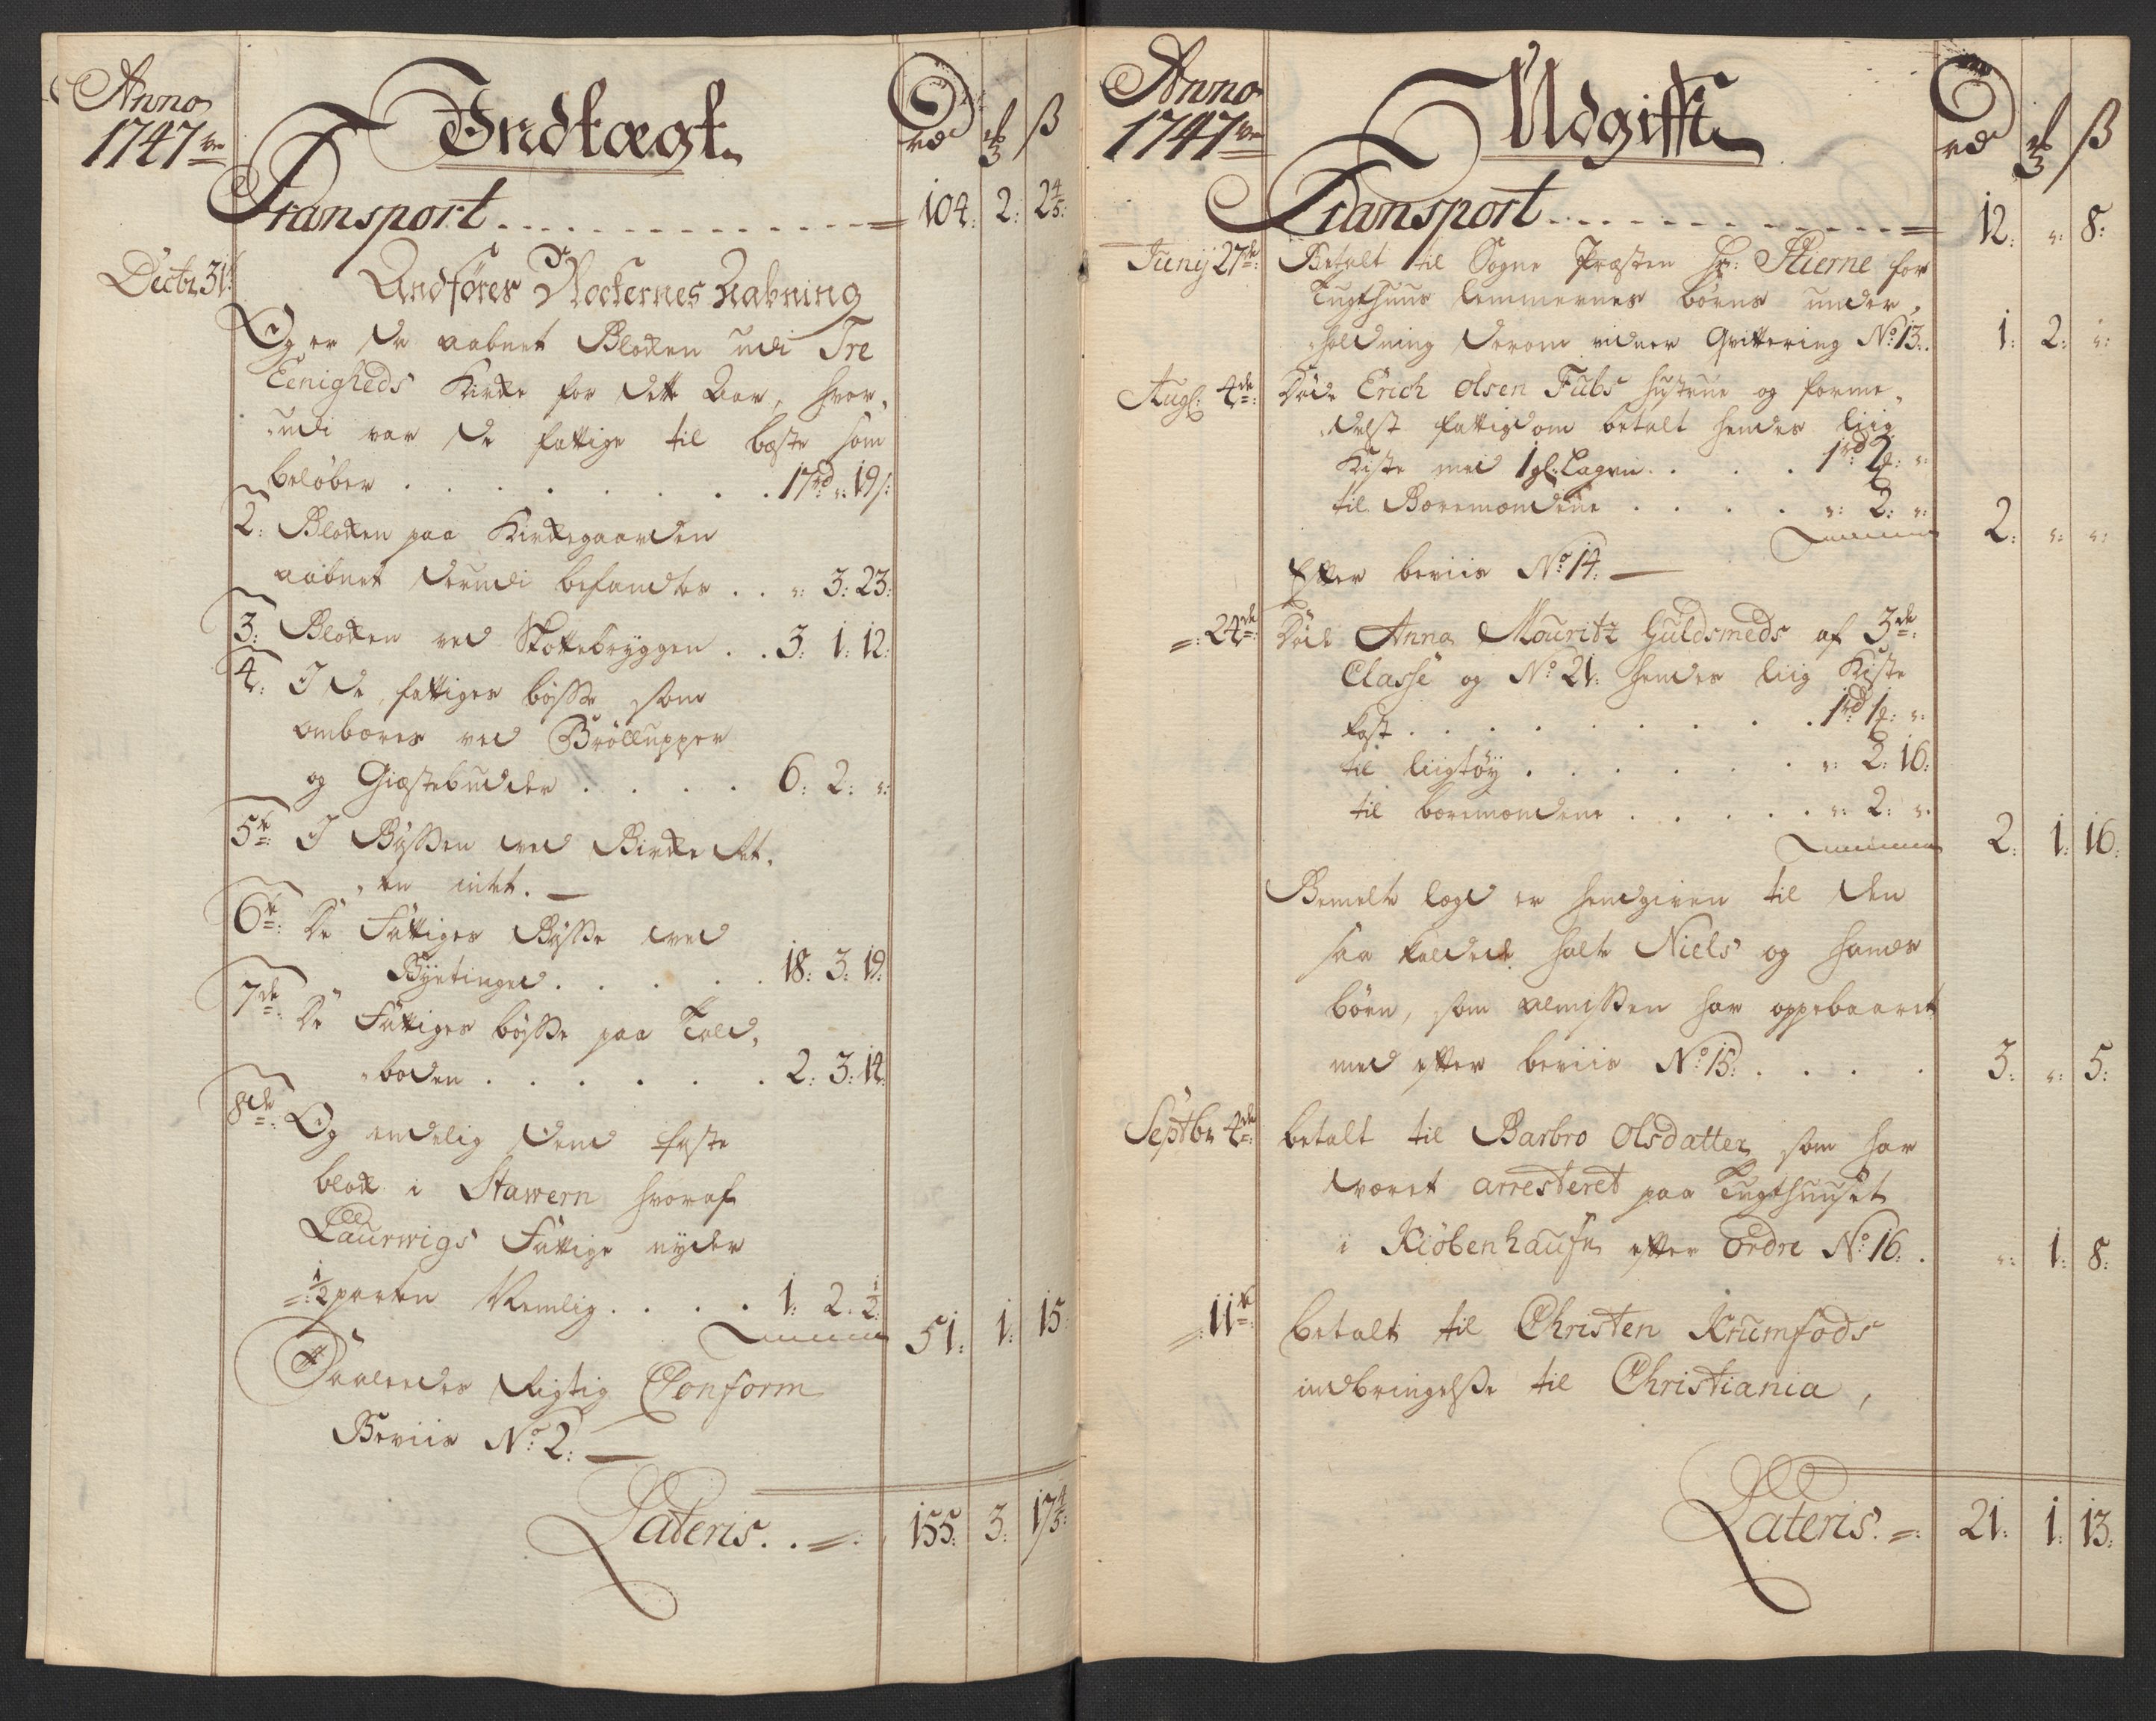 Anno
1747
Indtægt
rd ß
Transport 104: 2: 2 4/5:
Decbr 31:
Andföres Blockernes aabning
Og er da aabnet Blocken udi Tre
Eenigheds Kircke for dette Aar, hvor,,
,,udi var de fattige til bæste som
beløber . . . . . . . . 17rd „: 19ß:
2: Blocken paa Kirckegaarden
aabnet derudi befandtes . . „: 3: 23:
3: Blocken ved Skottebryggen . . 3: 1: 12:
4: I de fattiges bösse som
ombæres ved Bröllupper
og Giæstebuder . . . . 6: 2: „:
5te: I Bössen ved Bircke Ret,,
,,en intet. —
6te: De Fattiges Bösse ved
Byetinget . . . . . 18: 3: 19:
7de: De Fattiges bösse paa Told,,
,,boden . . . . . . 2: 3: 14:
8de: Og endelig dend faste
block i Stawern hvoraf
Laurwigs Fattige nyder
1/2 parten Nemlig . . . . 1: 2: 1/2:
51: 1: 15:
Saaledes Rigtig Conform
Beviis No: 2: —
Lateris. . 155: 3: 17 4/5:
Anno
1747
Udgifft
rd ß
Transport 12: „: 8:
Junij 27de: Betalt til Sogne Præsten Hr: Stierne for
Tugthuus lemmernes børns under,,
,,holdning derom viiser Qvittering No: 13. 1: 2: „:
Aug: 4de: Döde Erich Olsen Fubs hustrue og forme,,
,,delst fattigdom betalt hendes liig
Kiste med 1 gl: Lagen . . . 1rd 2: „:
til Bæremændene . . . . „: 2: „:
2: „: „:
Efter beviis No: 14: —
„: 24de: Döde Anna Mouritz Guldsmeds af 3de:
Classe og No: 21: hendes liig Kiste
kost . . . . . . . . 1rd 1: „:
til liigtöy . . . . . . „: 2: 16:
til bæremændene . . . . „: 2: „:
2: 1: 16:
Bemelte lægd er hendgiven til den
saa kaldede halte Niels og hands
börn, som almissen har oppebaaret
med efter beviis No: 15: . . . . 3: „: 5:
Septbr 4de: betalt til Barbro Olsdatter som har
været arresteret paa Tugthuuset
i Kiöbenhaufn efter Ordre No: 16: . „: 1: 8:
„: 11te: betalt til Christen Krumfods
indbringelse til Christiania,
Lateris. 21: 1: 13: